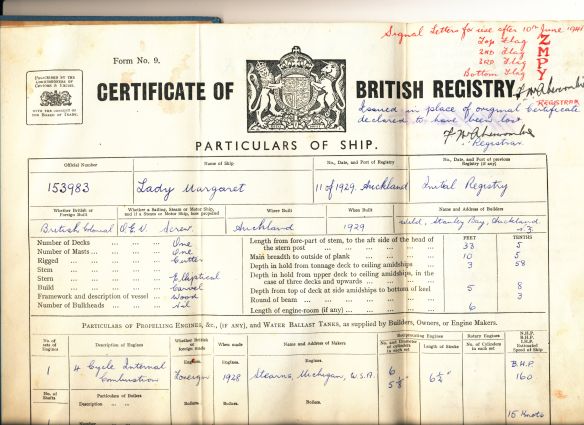 Signal Letters for use after 10th June 1941
Top Flag Z
2nd Flag M
3rd Flag P
Bottom Flag Y
REGISTRAR
Form No. 9.
PRESCRIBED BY THE
COMMISSIONERS OF
CUSTOMS & EXCISE.
WITH THE CONSENT OF
THE BOARD OF TRADE.
CERTIFICATE OF BRITISH REGISTRY
Issued in place of original Certificate
declared to have been lost.
Registrar
PARTICULARS OF SHIP.
Official Number
Name of Ship
No., Date, and Port of Registry
No., Date, and Port of previous
Registry (if any)
153983
Lady Margaret
11 of 1929. Auckland
Initial Registry
Whether British or
Foreign Built
Whether a Sailing, Steam or Motor Ship,
and if a Steam or Motor Ship, how propelled
Where Built
When Built
Name and Address of Builders
British Colonial
Screw
Auckland
1929
Stanley Bay, Auckland
FEET TENTHS
Number of Decks ... One
Number of Masts ... One
Rigged ... Cutter
Stem ...
Stern ... Elliptical
Build ... Carvel
Framework and description of vessel ... Wood
Number of Bulkheads ... Nil
Length from fore-part of stem, to the aft side of the head of
the stern post ... 33 5
Main breadth to outside of plank ... 10 5
Depth in hold from tonnage deck to ceiling amidships ... 3 58
Depth in hold from upper deck to ceiling amidships, in the
case of three decks and upwards ...
Depth from top of deck at side amidships to bottom of keel 5 8
Round of beam ... 3
Length of engine-room (if any) ... 6
PARTICULARS OF PROPELLING ENGINES, &c., (IF ANY), AND WATER BALLAST TANKS, as supplied by Builders, Owners, or Engine Makers.
No. of
sets of
Engines
Description of Engines
Whether
British or
foreign made
When made
Name and Address of Makers
Reciprocating Engines
No. and Diameter
of cylinders in
each set
Length of Stroke
Rotary Engines
No. of Cylinders
in each set
N.H.P.
B.H.P.
I.H.P.
Estimated
Speed of Ship
Engines.
Engines.
Engines.
1
4 Cycle Internal
Combustion
Foreign
1928
Stearns, Michigan, U.S.A.
6
6¼"
B.H.P.
160
No. of
Shafts
Particulars of Boilers
Description ...
Number
Boilers.
Boilers.
Boilers.
1
15 Knots